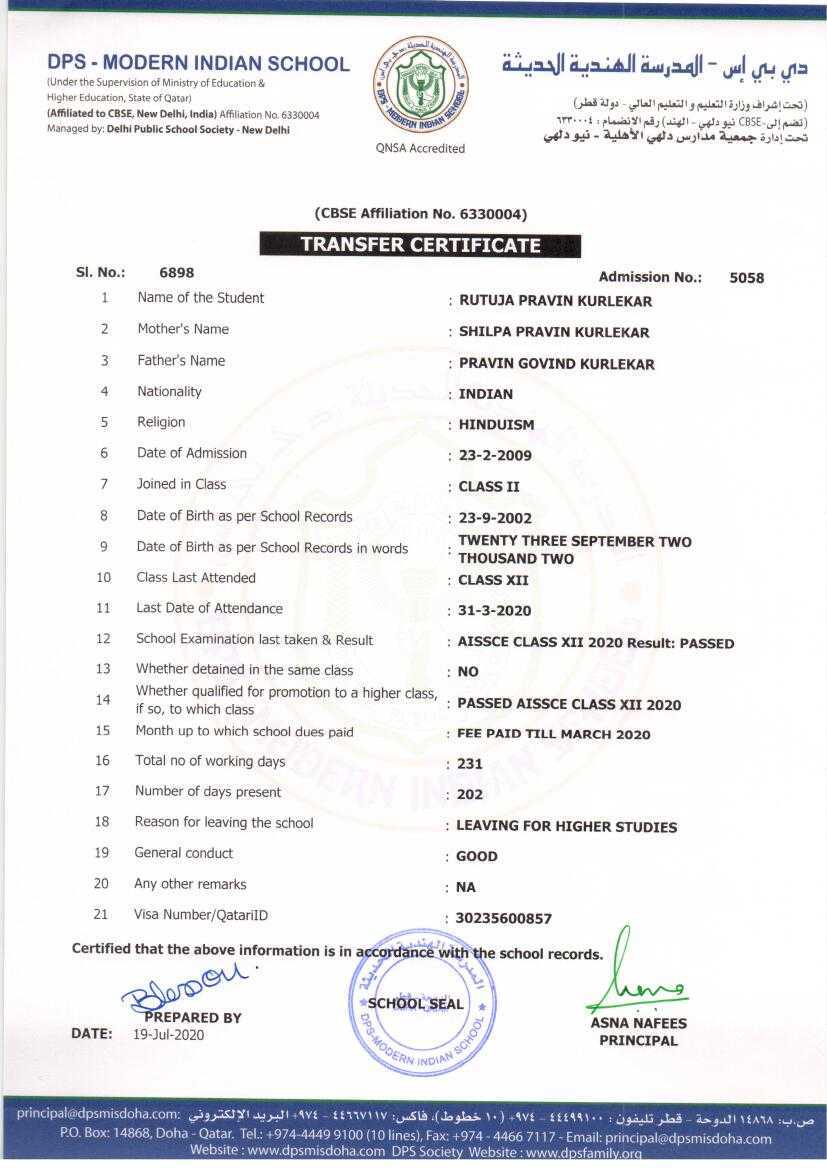 DPS - MODERN INDIAN SCHOOL
(Under the Supervision of Ministry of Education &
Higher Education, State of Qatar)
(Affiliated to CBSE, New Delhi, India) Affiliation No. 6330004
Managed by: Delhi Public School Society - New Delhi
DPS - MODERN INDIAN SCHOOL
QNSA Accredited
دي بي إس - المدرسة الهندية الحديثة
(تحت إشراف وزارة التعليم و التعليم العالي - دولة قطر)
(تنضم إلى-CBSE نيو دلهي - الهند) رقم الانضمام : ٦٣٣٠٠٠٤
تحت إدارة جمعية مدارس دلهي الأهلية - نيو دلهي
(CBSE Affiliation No. 6330004)
TRANSFER CERTIFICATE
Sl. No.: 6898 Admission No.: 5058
1 Name of the Student : RUTUJA PRAVIN KURLEKAR
2 Mother's Name : SHILPA PRAVIN KURLEKAR
3 Father's Name : PRAVIN GOVIND KURLEKAR
4 Nationality : INDIAN
5 Religion : HINDUISM
6 Date of Admission : 23-2-2009
7 Joined in Class : CLASS II
8 Date of Birth as per School Records : 23-9-2002
9 Date of Birth as per School Records in words : TWENTY THREE SEPTEMBER TWO
THOUSAND TWO
10 Class Last Attended : CLASS XII
11 Last Date of Attendance : 31-3-2020
12 School Examination last taken & Result : AISSCE CLASS XII 2020 Result: PASSED
13 Whether detained in the same class : NO
14 Whether qualified for promotion to a higher class,
if so, to which class : PASSED AISSCE CLASS XII 2020
15 Month up to which school dues paid : FEE PAID TILL MARCH 2020
16 Total no of working days : 231
17 Number of days present : 202
18 Reason for leaving the school : LEAVING FOR HIGHER STUDIES
19 General conduct : GOOD
20 Any other remarks : NA
21 Visa Number/QatariID : 30235600857
Certified that the above information is in accordance with the school records.
المدرسة الهندية الحديثة
SCHOOL SEAL
DPS-MODERN INDIAN SCHOOL
PREPARED BY
DATE: 19-Jul-2020
ASNA NAFEES
PRINCIPAL
ص.ب: ١٤٨٦٨ الدوحة - قطر تليفون : ٤٤٤٩٩١٠٠ - ٩٧٤+ (١٠ خطوط)، فاكس: ٤٤٦٦٧١١٧ - ٩٧٤+ البريد الإلكتروني :principal@dpsmisdoha.com
P.O. Box: 14868, Doha - Qatar. Tel.: +974-4449 9100 (10 lines), Fax: +974 - 4466 7117 - Email: principal@dpsmisdoha.com
Website : www.dpsmisdoha.com DPS Society Website : www.dpsfamily.org